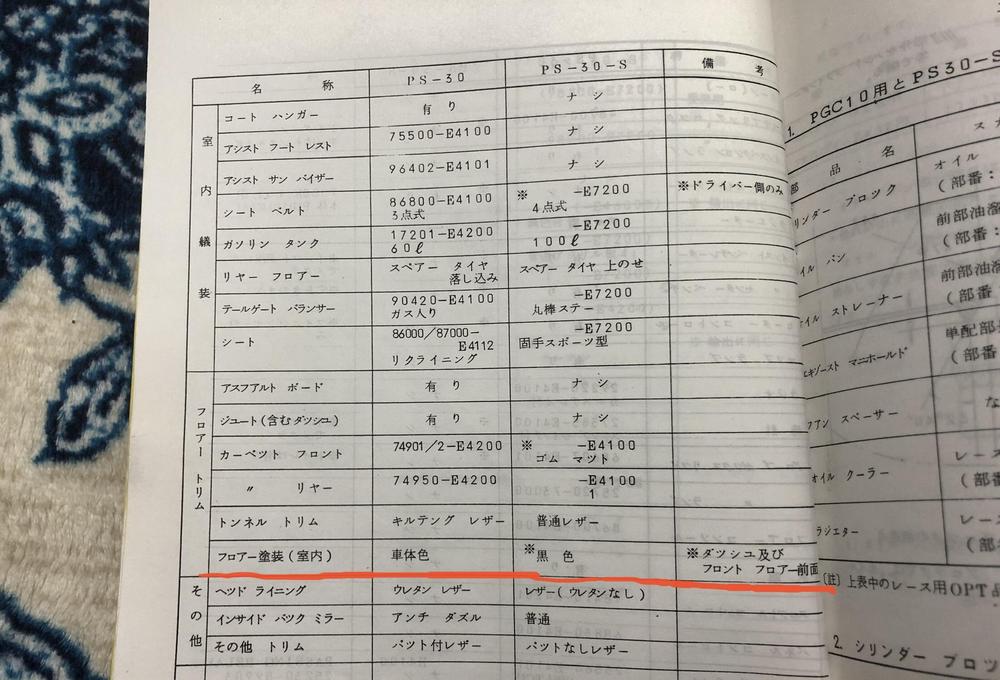 名 称 PS-30 PS-30-S 備 考
室内艤装
コート ハンガー 有り ナシ
アシスト フート レスト 75500-E4100 ナシ
アシスト サン バイザー 96402-E4101 ナシ
シート ベルト 86800-E4100 ※ -E7200 ※ドライバー側のみ
3点式 4点式
ガソリン タンク 17201-E4200 -E7200
60ℓ 100ℓ
リヤー フロアー スペアー タイヤ スペアー タイヤ 上のせ
落し込み
テールゲート バランサー 90420-E4100 -E7200
ガス入り 丸棒ステー
シート 86000/87000- -E7200
E4112 固手スポーツ型
リクライニング
フロアー トリム
アスフアルト ボード 有り ナシ
ジュート(含むダツシュ) 有り ナシ
カーペット フロント 74901/2-E4200 ※ -E4100
ゴム マツト
〃 リヤー 74950-E4200 -E4100
1
トンネル トリム キルテング レザー 普通レザー
フロアー塗装(室内) 車体色 ※黒色 ※ダツシユ及び
フロント フロアー前面
その他
ヘツド ライニング ウレタン レザー レザー(ウレタンなし)
インサイド バツク ミラー アンチ ダズル 普通
その他 トリム パット付レザー パットなしレザー
1. PGC10用とPS30-S
部 品 名
オイル
リンダー ブロック (部番:
イル パン 前部油溜
(部番:
イル ストレーナー 前部油溜
(部番
エキゾースト マニホールド 単配部
(部番
フアン スペーサー な
オイル クーラー レース
(部番
ラジエター レー
(部
(註) 上表中のレース用OPT
2. シリンダー ブロツ